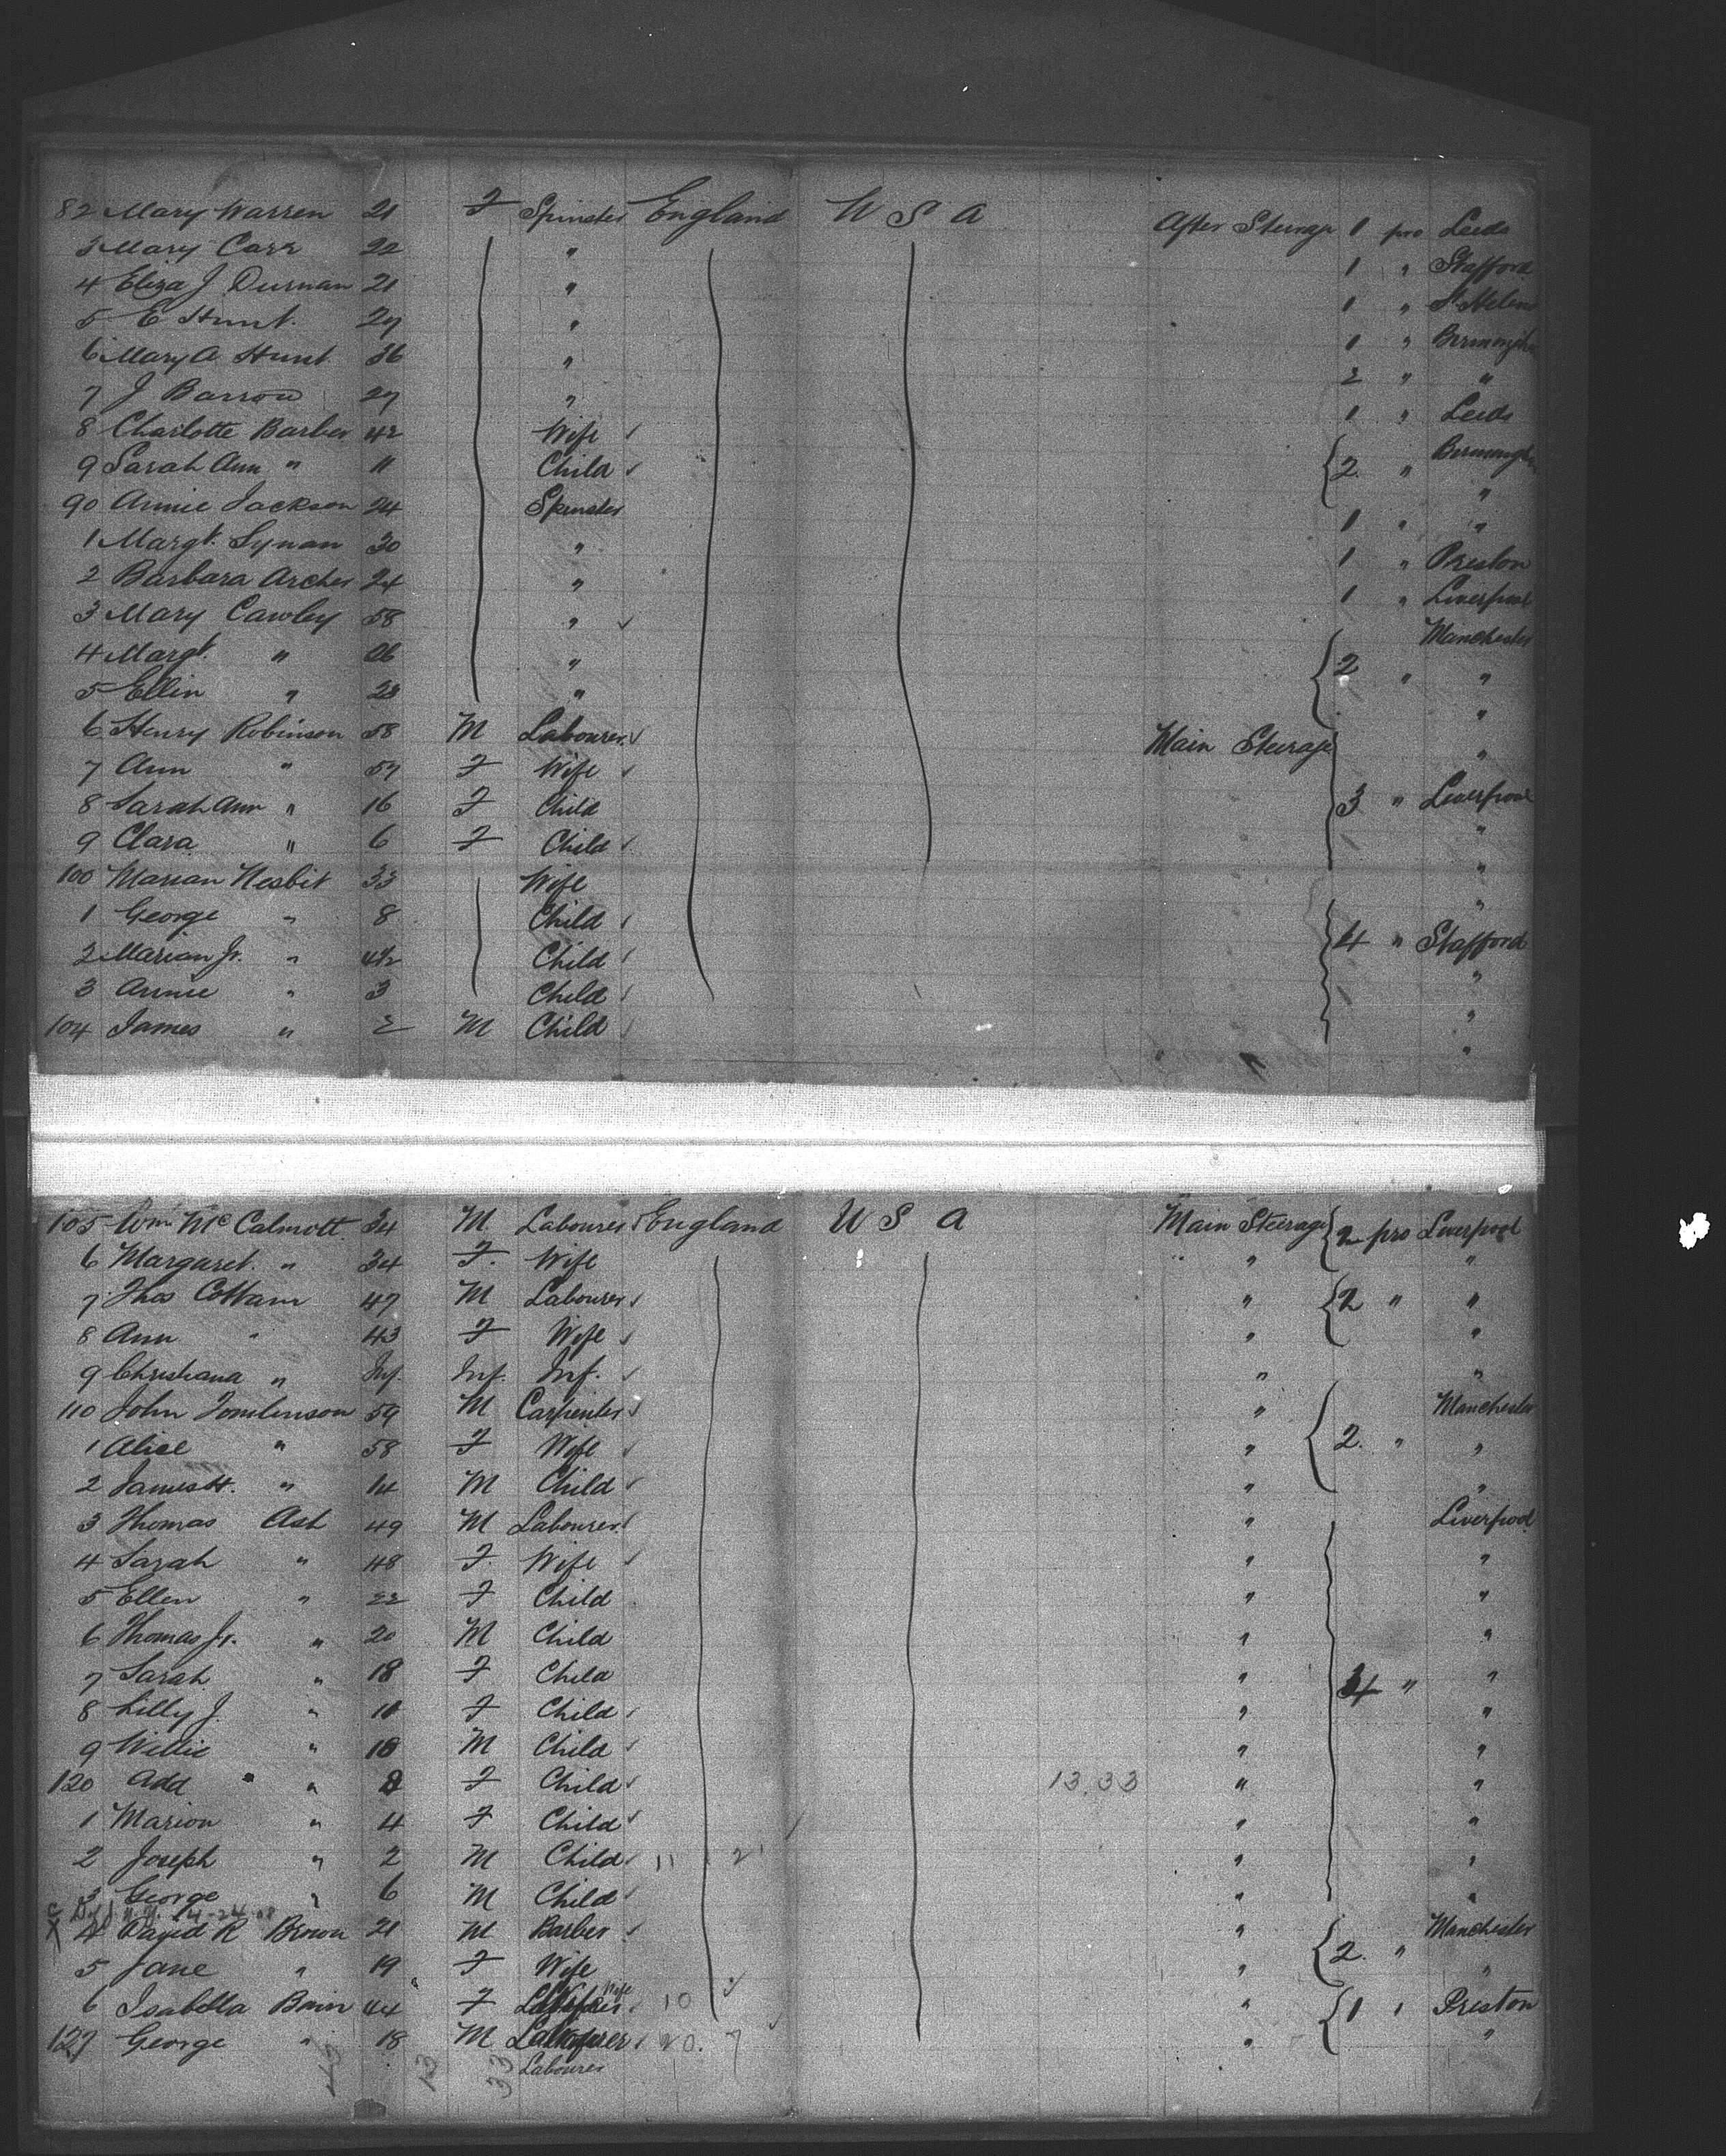 82 Mary Warren 21 F Spinster England U S A After Steerage 1 pro Leeds
3 Mary Carr 22 " 1 " Stafford
4 Eliza J Durnan 21 " 1 " St Helens
5 E Hunt. 27 " 1 "
6 Mary A Hunt 36 " 2 " "
7 J Barrow 27 " 1 " Leeds
8 Charlotte Barber 42 Wife
9 Sarah Ann " 11 Child 2 "
90 Annie Jackson 24 Spinster 1 " "
1 Margt. Lynan 30 " 1 " Preston
2 Barbara Archer 24 " 1 " Liverpool
3 Mary Cawley 58 " Manchester
4 Margt. " 26 " 2 " "
5 Ellin " 23 " "
6 Henry Robinson 58 M Labourer Main Steerage "
7 Ann " 57 F Wife
8 Sarah Ann " 16 F Child 3 " Liverpool
9 Clara " 6 F Child "
100 Marian Nesbit 33 Wife "
1 George " 8 Child "
2 Marian Jr. " 4½ Child 4 " Stafford
3 Annie " 3 Child "
104 James " 2 M Child "
105 Wm McCalmott 34 M Labourer England U S A Main Steerage 2 pro Liverpool
6 Margaret. " 34 F. Wife " "
7 Thos Cottam 47 M Labourer " 2 " "
8 Ann " 43 F Wife " "
9 Christiana " Inf. Inf. Inf. " "
110 John Tomlinson 59 M Carpenter " Manchester
1 Alice " 58 F Wife " 2. " "
2 James H. " 14 M Child " "
3 Thomas Ash 49 M Labourer " Liverpool
4 Sarah " 48 F. Wife " "
5 Ellen " 22 F Child " "
6 Thomas Jr. " 20 M Child " "
7 Sarah " 18 F Child " 4 " "
8 Lilly J. " 11 F Child " "
9 Willie " 10 M Child " "
120 Add " 8 F Child 13.33 " "
1 Marion " 4 F Child " "
2 Joseph " 2 M Child 11 2 " "
3 George " 6 M Child " "
4-24-08
4 David R Brown 21 M Barber " Manchester
5 Jane " 19 F Wife " 2. " "
6 Isabella Bain 44 F Wife 10 " 1 " Preston
127 George " 18 M Labourer 20. 7 " "
Labourer
13 33